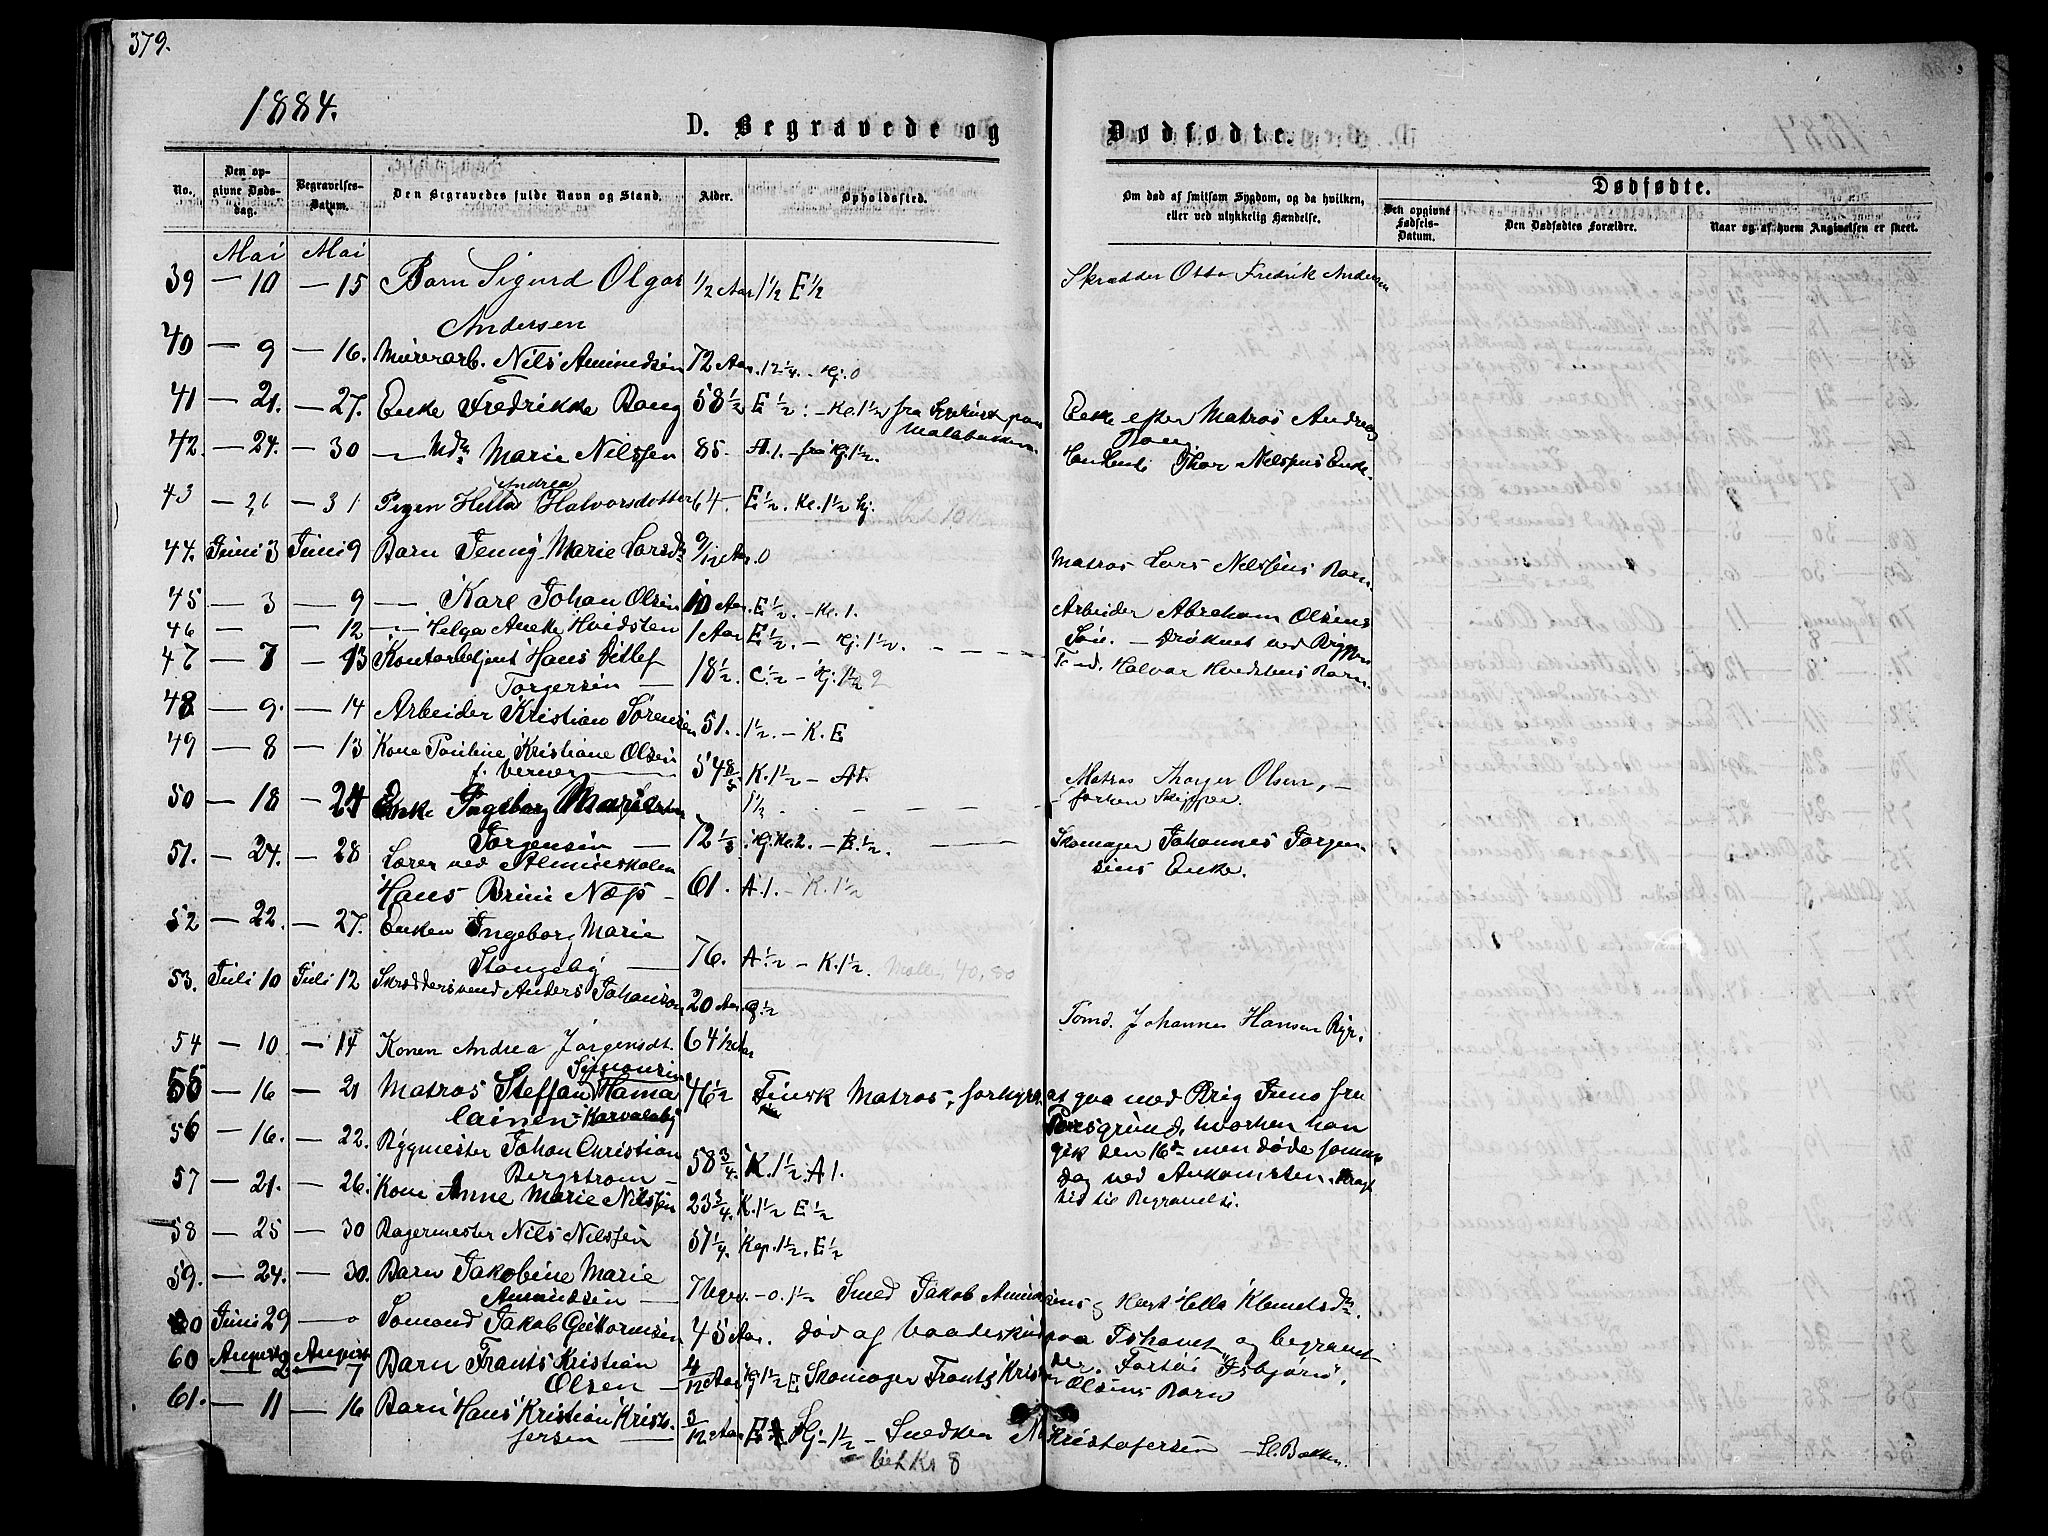 379.
1884.
D. Begravede og Dødfødte.
No. Den opgivne Døds-dag. Begravelses-Datum. Den Begravedes fulde Navn og Stand. Alder. Opholdssted. Om død af smitsom Sygdom, og da hvilken, eller ved ulykkelig Hændelse. Dødfødte. Den opgivne Fødsels-Datum. Den Dødfødtes Forældre. Naar og af hvem Angivelsen er skeet.
Mai Mai
39 — 10 — 15 Barn Sigurd Olgar 1/2 Aar 1 1/2 E 1/2 Skrædder Otto Fredrik Andersen
Andersen
40 — 9 — 16. Murerarb. Nils Amundsen 72 Aar. 12 1/4 - Kj. 0
41 — 21. — 27. Enke Fredrikke Bang 58 1/2 E 1/2 : - Kl. 1 1/2 fra Enke efter Matros Andreas
Bang
42. — 24. — 30 — Md. Marie Nilssen 85. A. 1. - fra Kj. 1 1/2. Thor Nilssens Enke.
43 — 26 — 31 Pigen Hella Andrea Halvorsdatter 64 - E 1/2. Kl. 1 1/2 Kj.
44. Juni 3 Juni 9 Barn Jenny Marie Larsdr 9/12 Aar. 0 Matros Lars Nilssens Barn
45 — 3 — 9 — Karl Johan Olsen 10 Aar. E 1/2. - Kl. 1. Arbeider Abraham Olsens
46 — — 12 — Helga Aneke Hvidsten 1 Aar E 1/2. - Kj. 1 1/2. Søn. - Druknet ved Bryggen
47 — 7 — 13 Kontorbetjent Hans Ditlef 18 1/2. C. 1/2 - Kj. 1 1/2 2 Tomd. Halvor Hvidstens Barn.
Torgersen —
48 — 9. — 14 Arbeider Kristian Sørensen 51. 1 1/2. - K. E
49 — 8 — 13 Kone Pauline Kristiane Olsen 54 8/5 K. 1 1/2 - A1. Matros Thorger Olsen, —
f. Verner — forhen Skipper.
50 — 18 — 24 Enke Ingeborg Marie 1 1/2
Jørgensen — 72 1/3 Kj. Kl. 2. - E. 1/2. Skomager Johannes Jørgen-
sens Enke.
51. — 24. — 28 Lærer ved Almueskolen
Hans Bruu Næss - 61. A 1. - K. 1 1/2
52 — 22. — 27. Enken Ingeborg Marie
Slangeby — 76. A 1/2 - K. 1 1/2. 40,80
53. Juli 10 Juli 12 Skræddersvend Anders Johanson 20 Aar. 9. 1/2
54 — 10 — 14 Konen Andrea Jørgensdt. 64 1/2 Aar Tomd. Johannes Hansen Bryr.
Simonsen
55 — 16 — 21 Matros Steffan Hama 46 1/2 Finsk Matros, forhyret at gaa med Brig Juno fra
lainen - Karvalaby Porsgrund, hvorhen han
56 — 16. — 22. Rygmester Johan Christian 58 3/4. K. 1 1/2 A 1. gik den 16de men døde samme
Bergstrom — Dag ved Ankomsten. Bragt
57 — 21. — 26. Kone Anne Marie Nilssen 23 3/4. K. 1 1/2 E 1/2 hid til Begravelse.
58 — 25 — 30 Bagermester Nils Nilssen 57 1/4. Kap. 1 1/2. E 1/2
59. — 24. — 30. Barn Jakobine Marie
Amundsen — 7 Uger. - 0. 1 1/2 Smed Jakob Amundsens og Hust Hella Klemetsdr.
60 Juni 29 — 0 Sømand Jakob Guttormsen 45 Aar. død af Vaadeskud paa Ishavet og begravet
60 August 2 August 7 Barn Frants Kristian 4/12 Aar Kj 1 1/2 E Skomager Frants Kristian der. Fartøi "Isbjørn".
Olsen — Olsens Barn
61. — 11 — 16 Barn Hans Kristian Kristo- 3/12 Aar E Kj - 1 1/2 - Snedker M Kristofersen - Sl. Bakken.
fersen —
bet. Kr 8